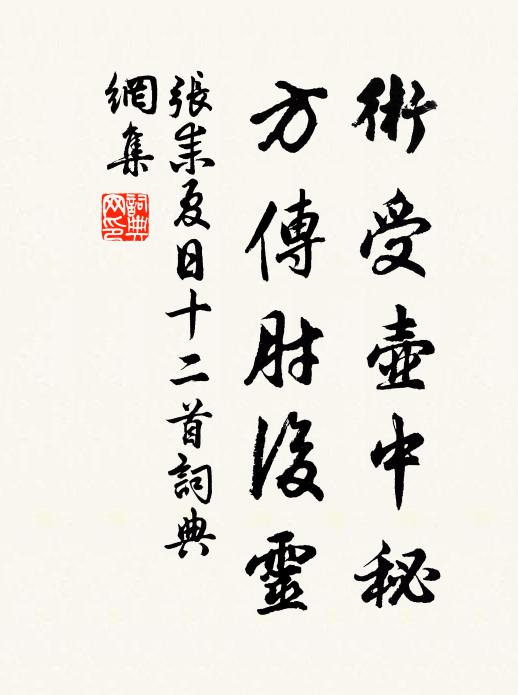 術受壺中秘
方傳肘後靈
張耒夏日十二首詞典
網集
詞典
网印